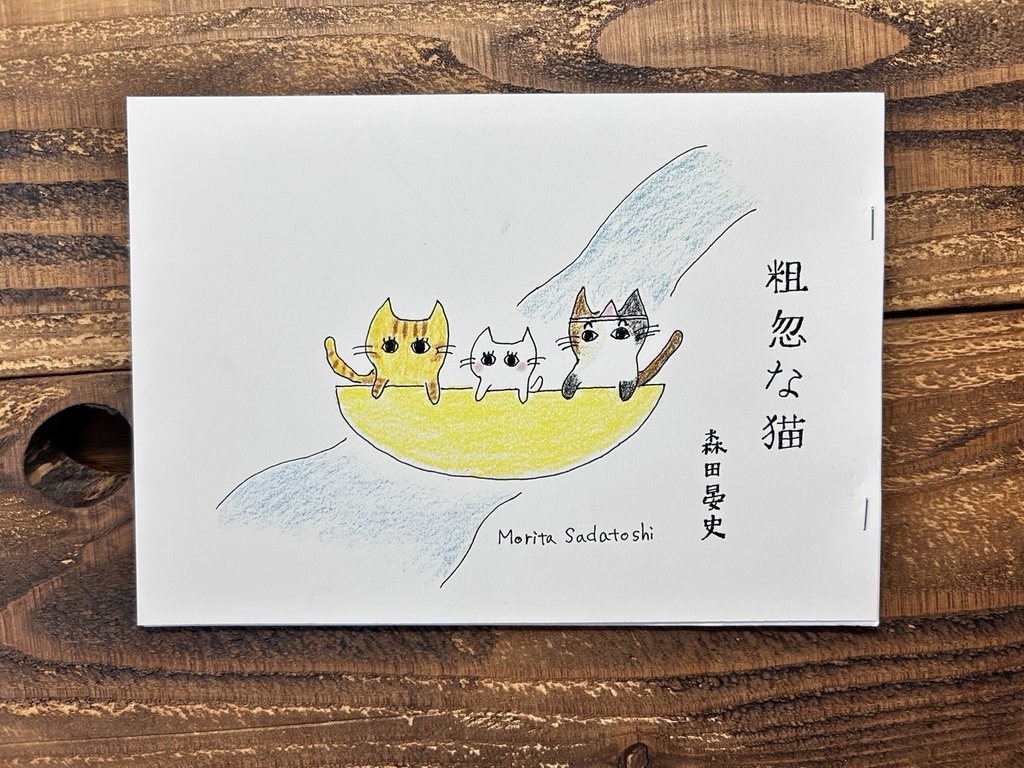 粗忽な猫
森田晏史
Morita Sadatoshi